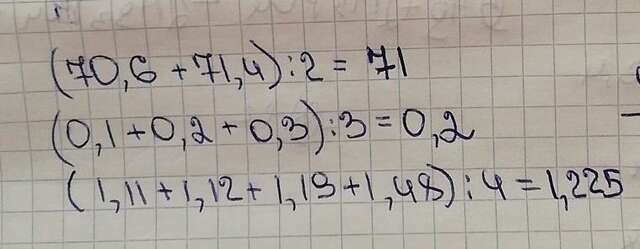 (70,6 + 71,4) : 2 = 71
(0,1 + 0,2 + 0,3) : 3 = 0,2
(1,11 + 1,12 + 1,19 + 1,48) : 4 = 1,225